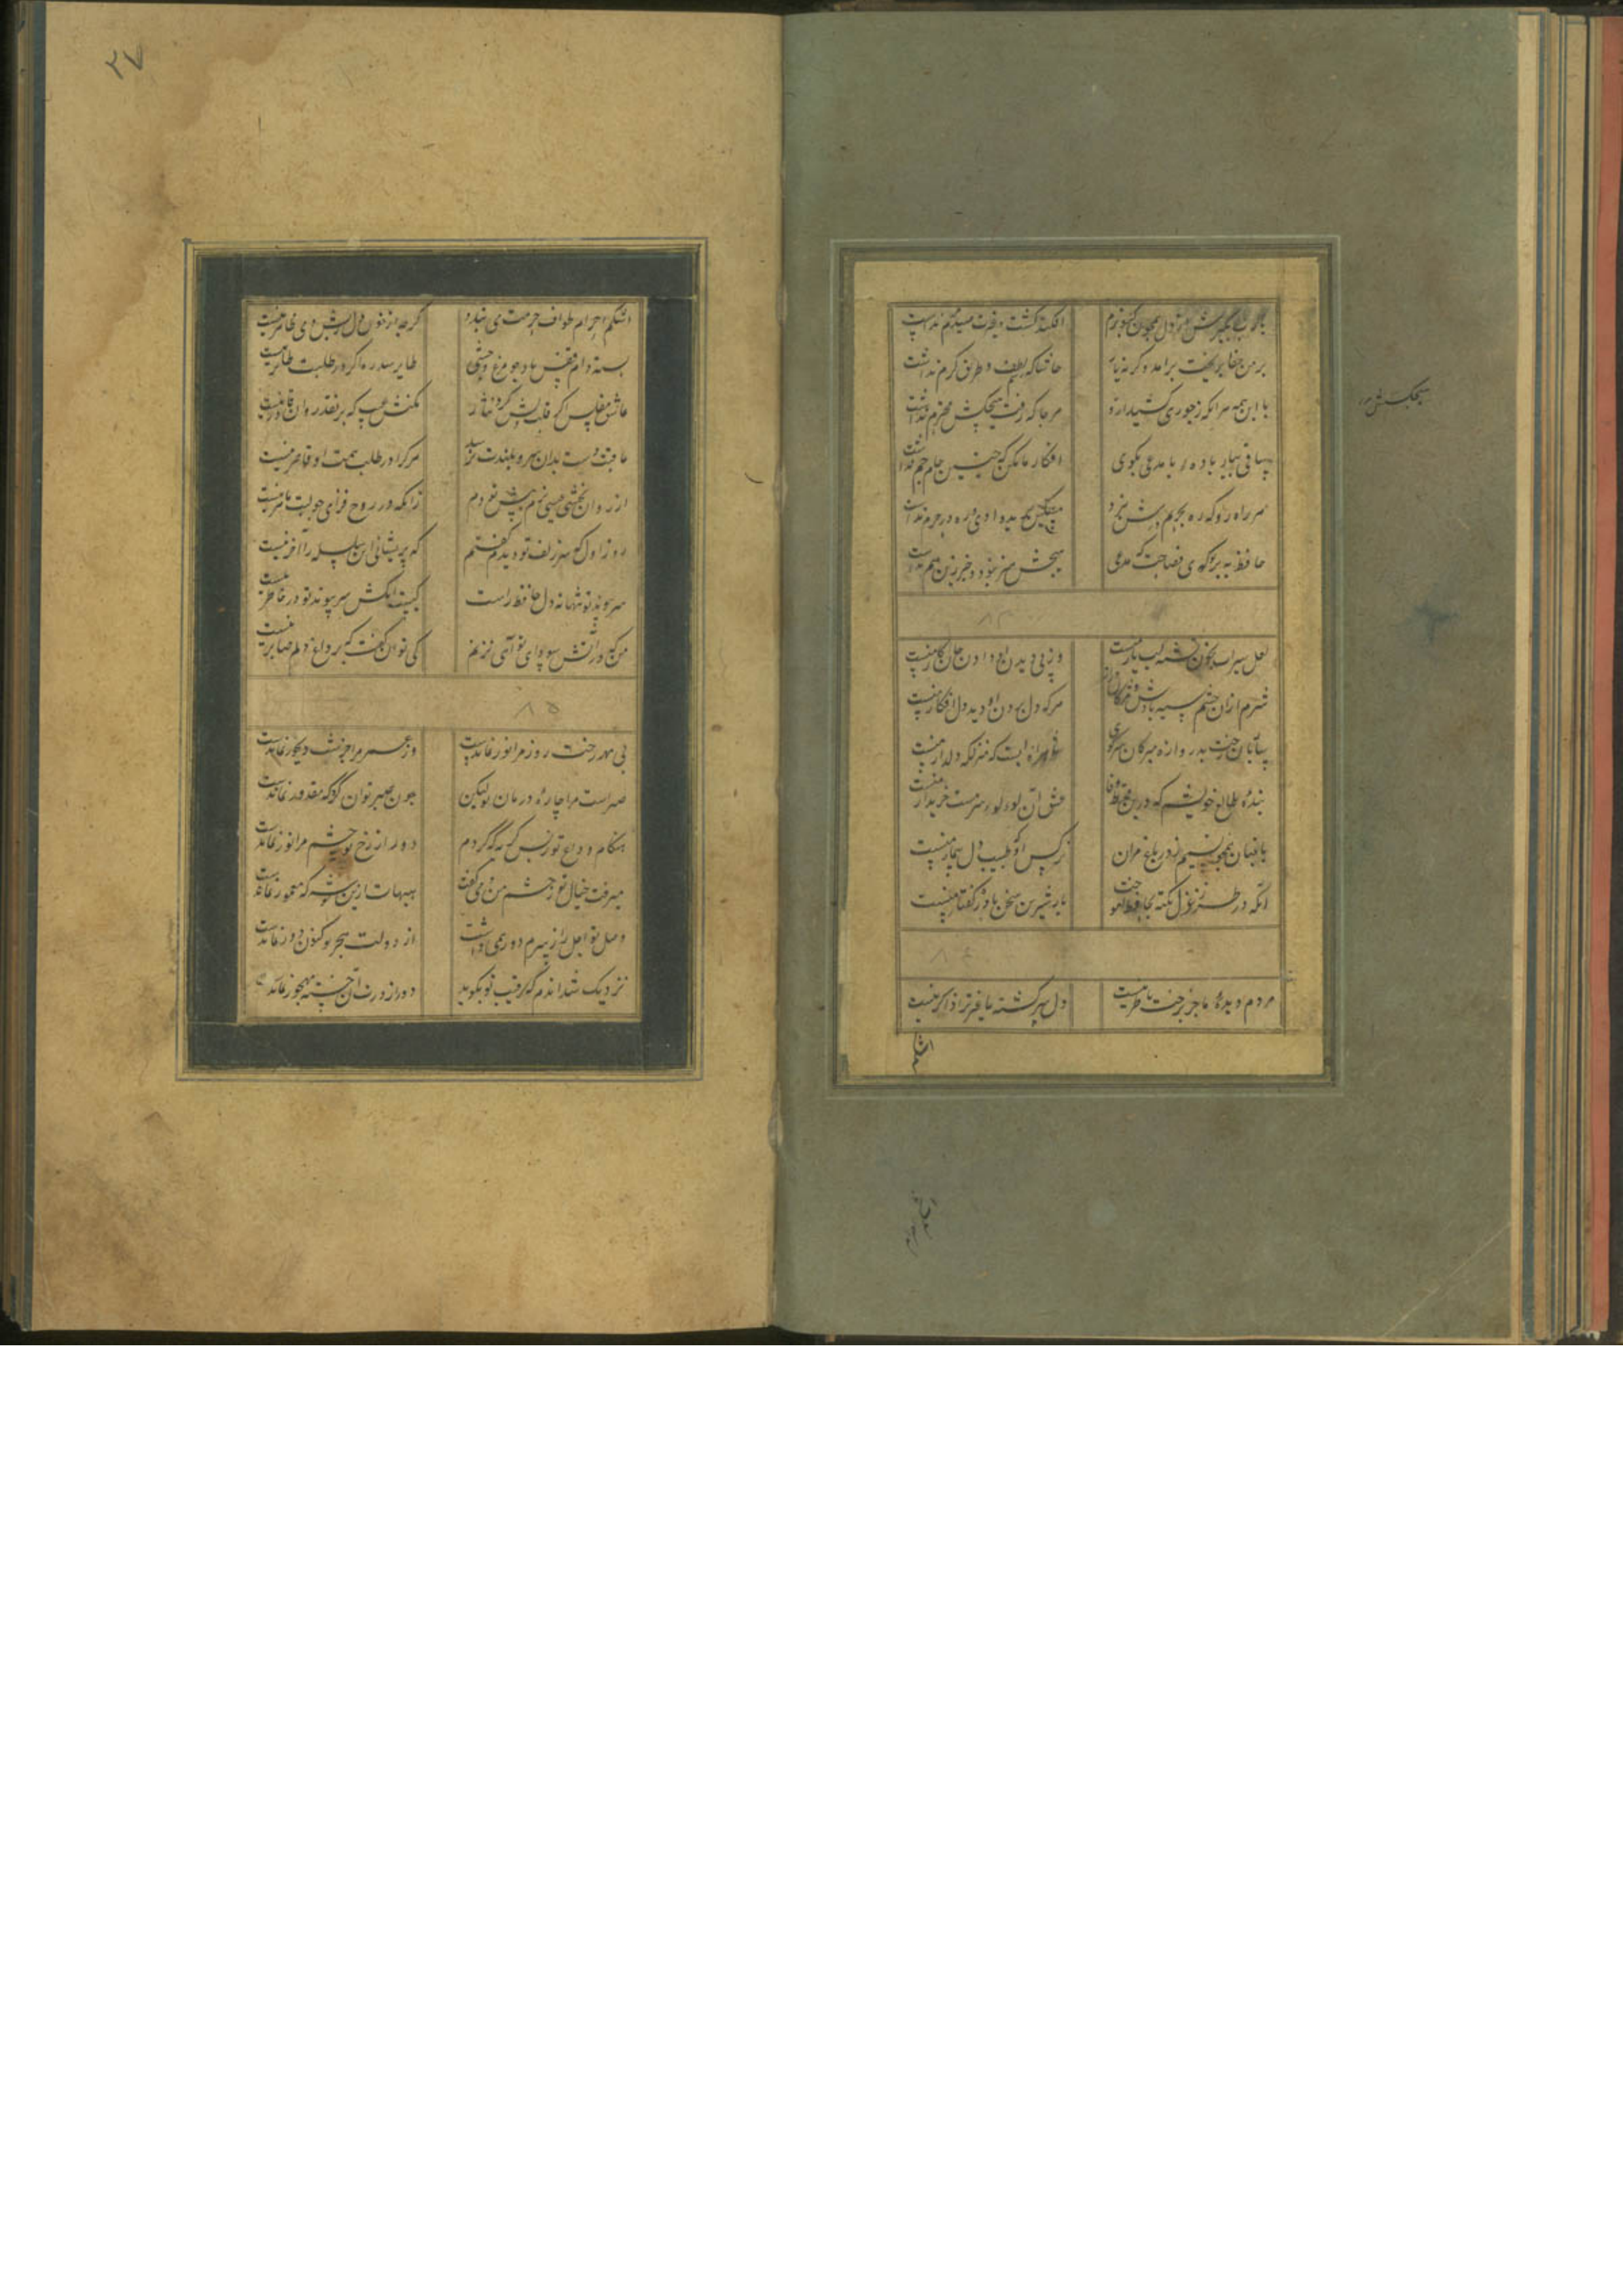 یارب مگیرش ارچه دل چون کبوترم افکند و کشت و عزت صید حرم نداشت
بر من جفا ز بخت برآمد وگرنه یار حاشا که لطف و طریق کرم نداشت
با این همه هر آنکه نه خواری کشید ازو هرجا که رفت هیچکس محترم نداشت
هیچکسش
ساقی بیار باده و با مدعی بگوی انکار ما مکن که چنین جام جم نداشت
هر راه رو که ره بحریم درش نبرد مسکین برید وادی و ره در حرم نداشت
حافظ ببر تو گوی فصاحت که مدعی هیچش هنر نبود و خبر نیز هم نداشت
۸۳
لعل سیراب بخون تشنه لب یار منست وز پی دیدن او دادن جان کار منست
شرم ازان چشم سیه بادش و مژکان دراز هرکه دل بردن او دید و در انکار منست
ساربان رخت بدروازه مبر کان سر کوی شاه راهیست که منزلکه دلدار منست
بنده طالع خویشم که درین قحط وفا عشق آن لولی سرمست خریدار منست
باغبان همچو نسیمم ز در باغ مران
نرکس او که طبیب دل بیمار منست
آنکه در طرز غزل نکته بحافظ آموخت یار شیرین سخن نادره کفتار منست
۸۴
مردم دیده ما جز برخت ناظر نیست دل سرکشته ما غیر ترا ذاکر نیست
اشکم
اشکم احرام
۲۷
اشکم احرام طواف حرمت می بندد کرچه از خون دل ریش دمی طاهر نیست
بسته دام قفس باد چو مرغ وحشی طایر سدره اکر در طلبت طایر نیست
عاشق مفلس اکر قلب دلش کرد نثار مکنش عیب که بر نقد روان قادر نیست
عاقبت دست بدان سرو بلندت برسد هرکرا در طلبت همت او قاصر نیست
از روان بخشی عیسی نزنم پیش تو دم زانکه در روح فزای چو لبت ماهر نیست
روز اول که سر زلف تو دیدم کفتم که پریشانی این سلسله را آخر نیست
سر پیوند تو تنها نه دل حافظ راست کیست آنکش سر پیوند تو در خاطر نیست
من که در آتش سودای تو آهی نزنم کی توان کفت که بر داغ دلم صابر نیست
۸۵
بی مهر رخت روز مرا نور نماندست وز عمر مرا جز شب دیجور نماندست
صبرست مرا چاره درمان تو لیکن چون صبر توان کرد که مقدور نماندست
هنکام وداع تو ز بس کریه که کردم دور از رخ تو چشم مرا نور نماندست
میرفت خیال تو ز چشم من و می کفت هیهات ازین کوشه که معمور نماندست
وصل تو اجل را ز سرم دور همی داشت از دولت هجر تو کنون دور نماندست
نزدیک شد آن دم که رقیب تو بکوید دور از درت آن خسته مهجور نماندست